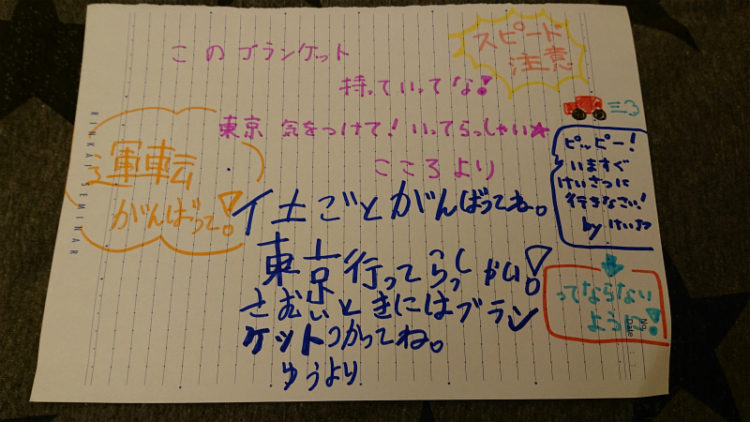 このブランケット
持っていってな!
東京 気をつけて! いってらっしゃい☆
こころより
スピード
注意
運転
がんばって!。
仕ごとがんばってね。
東京行ってらっしゃい!
さむいときにはブラン
ケットつかってね。
ゆうより
ピッピー!
いますぐ
けいさつに
行きなさい!
by けいさつ
ってならない
ように!
RINKAI SEMINAR
No.
Date